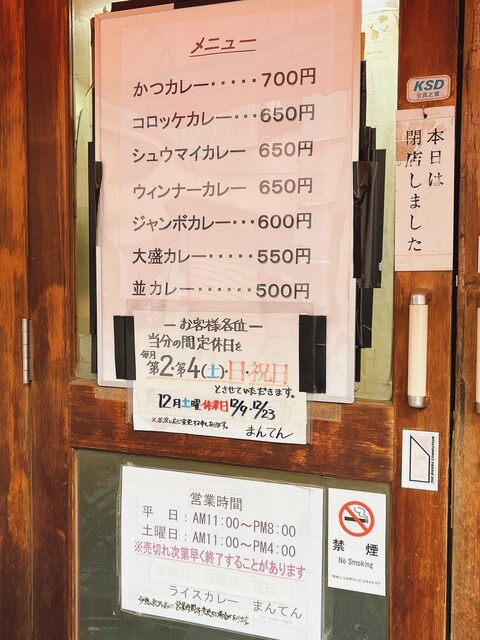 メニュー
かつカレー・・・・・700円
コロッケカレー・・・650円
シュウマイカレー 650円
ウィンナーカレー 650円
ジャンボカレー・・・600円
大盛カレー・・・・・550円
並カレー・・・・・・500円
KSD
会員之章
本日は
閉店しました
―お客様各位―
当分の間定休日を
毎月
第2・第4(土)・日・祝日
とさせていただきます。
12月土曜・休業日12/9・12/23
まんてん
営業時間
平 日:AM11:00〜PM8:00
土曜日:AM11:00〜PM4:00
※売切れ次第早く終了することがあります
ライスカレー まんてん
禁 煙
No Smoking